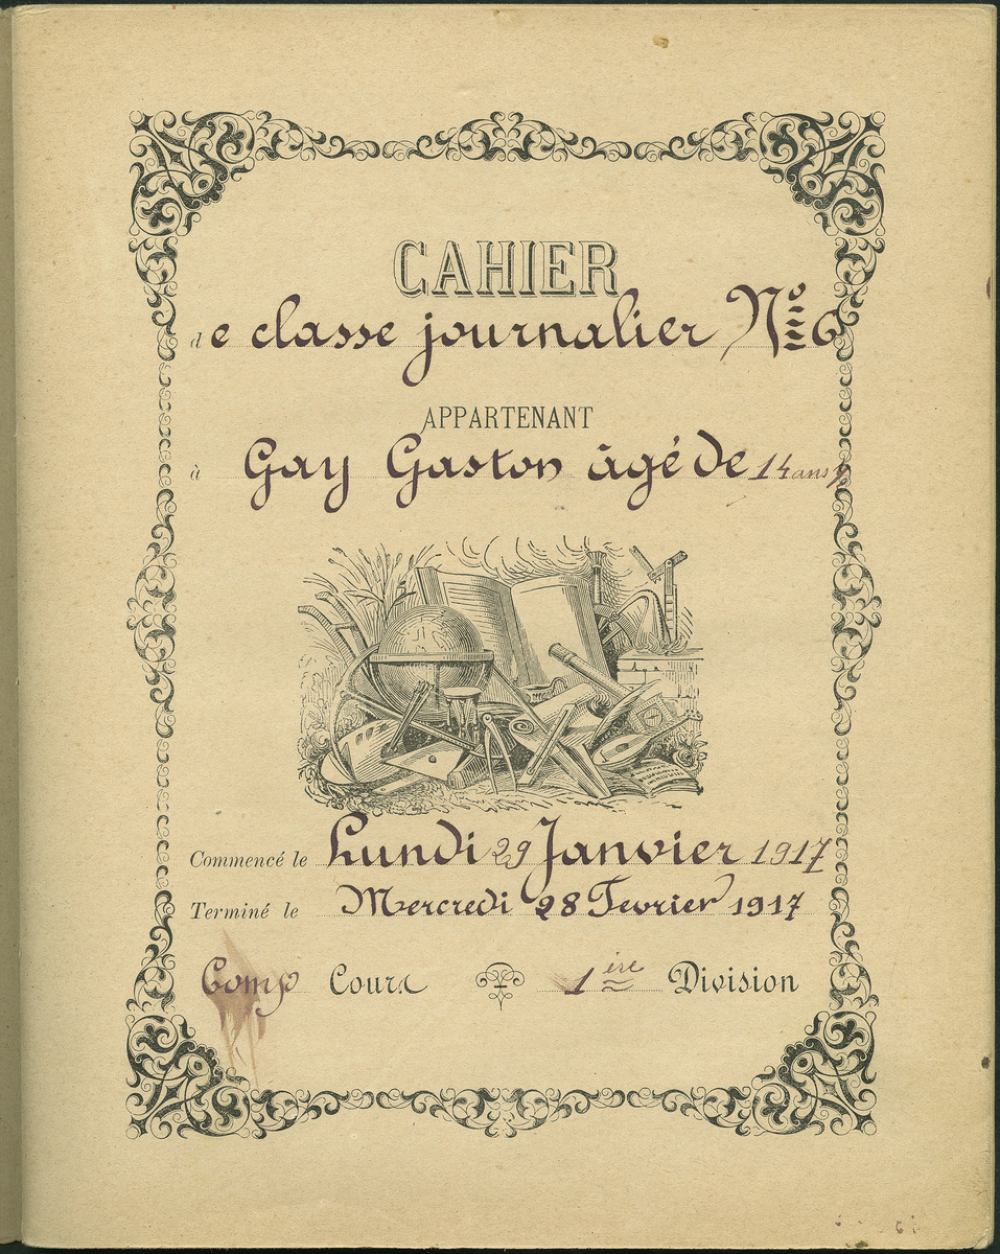 CAHIER
de classe journalier Nº 6
APPARTENANT
à Gay Gaston âgé de 14 ans
Commencé le Lundi 29 Janvier 1917
Terminé le Mercredi 28 Fevrier 1917
Comp Cours 1ère Division